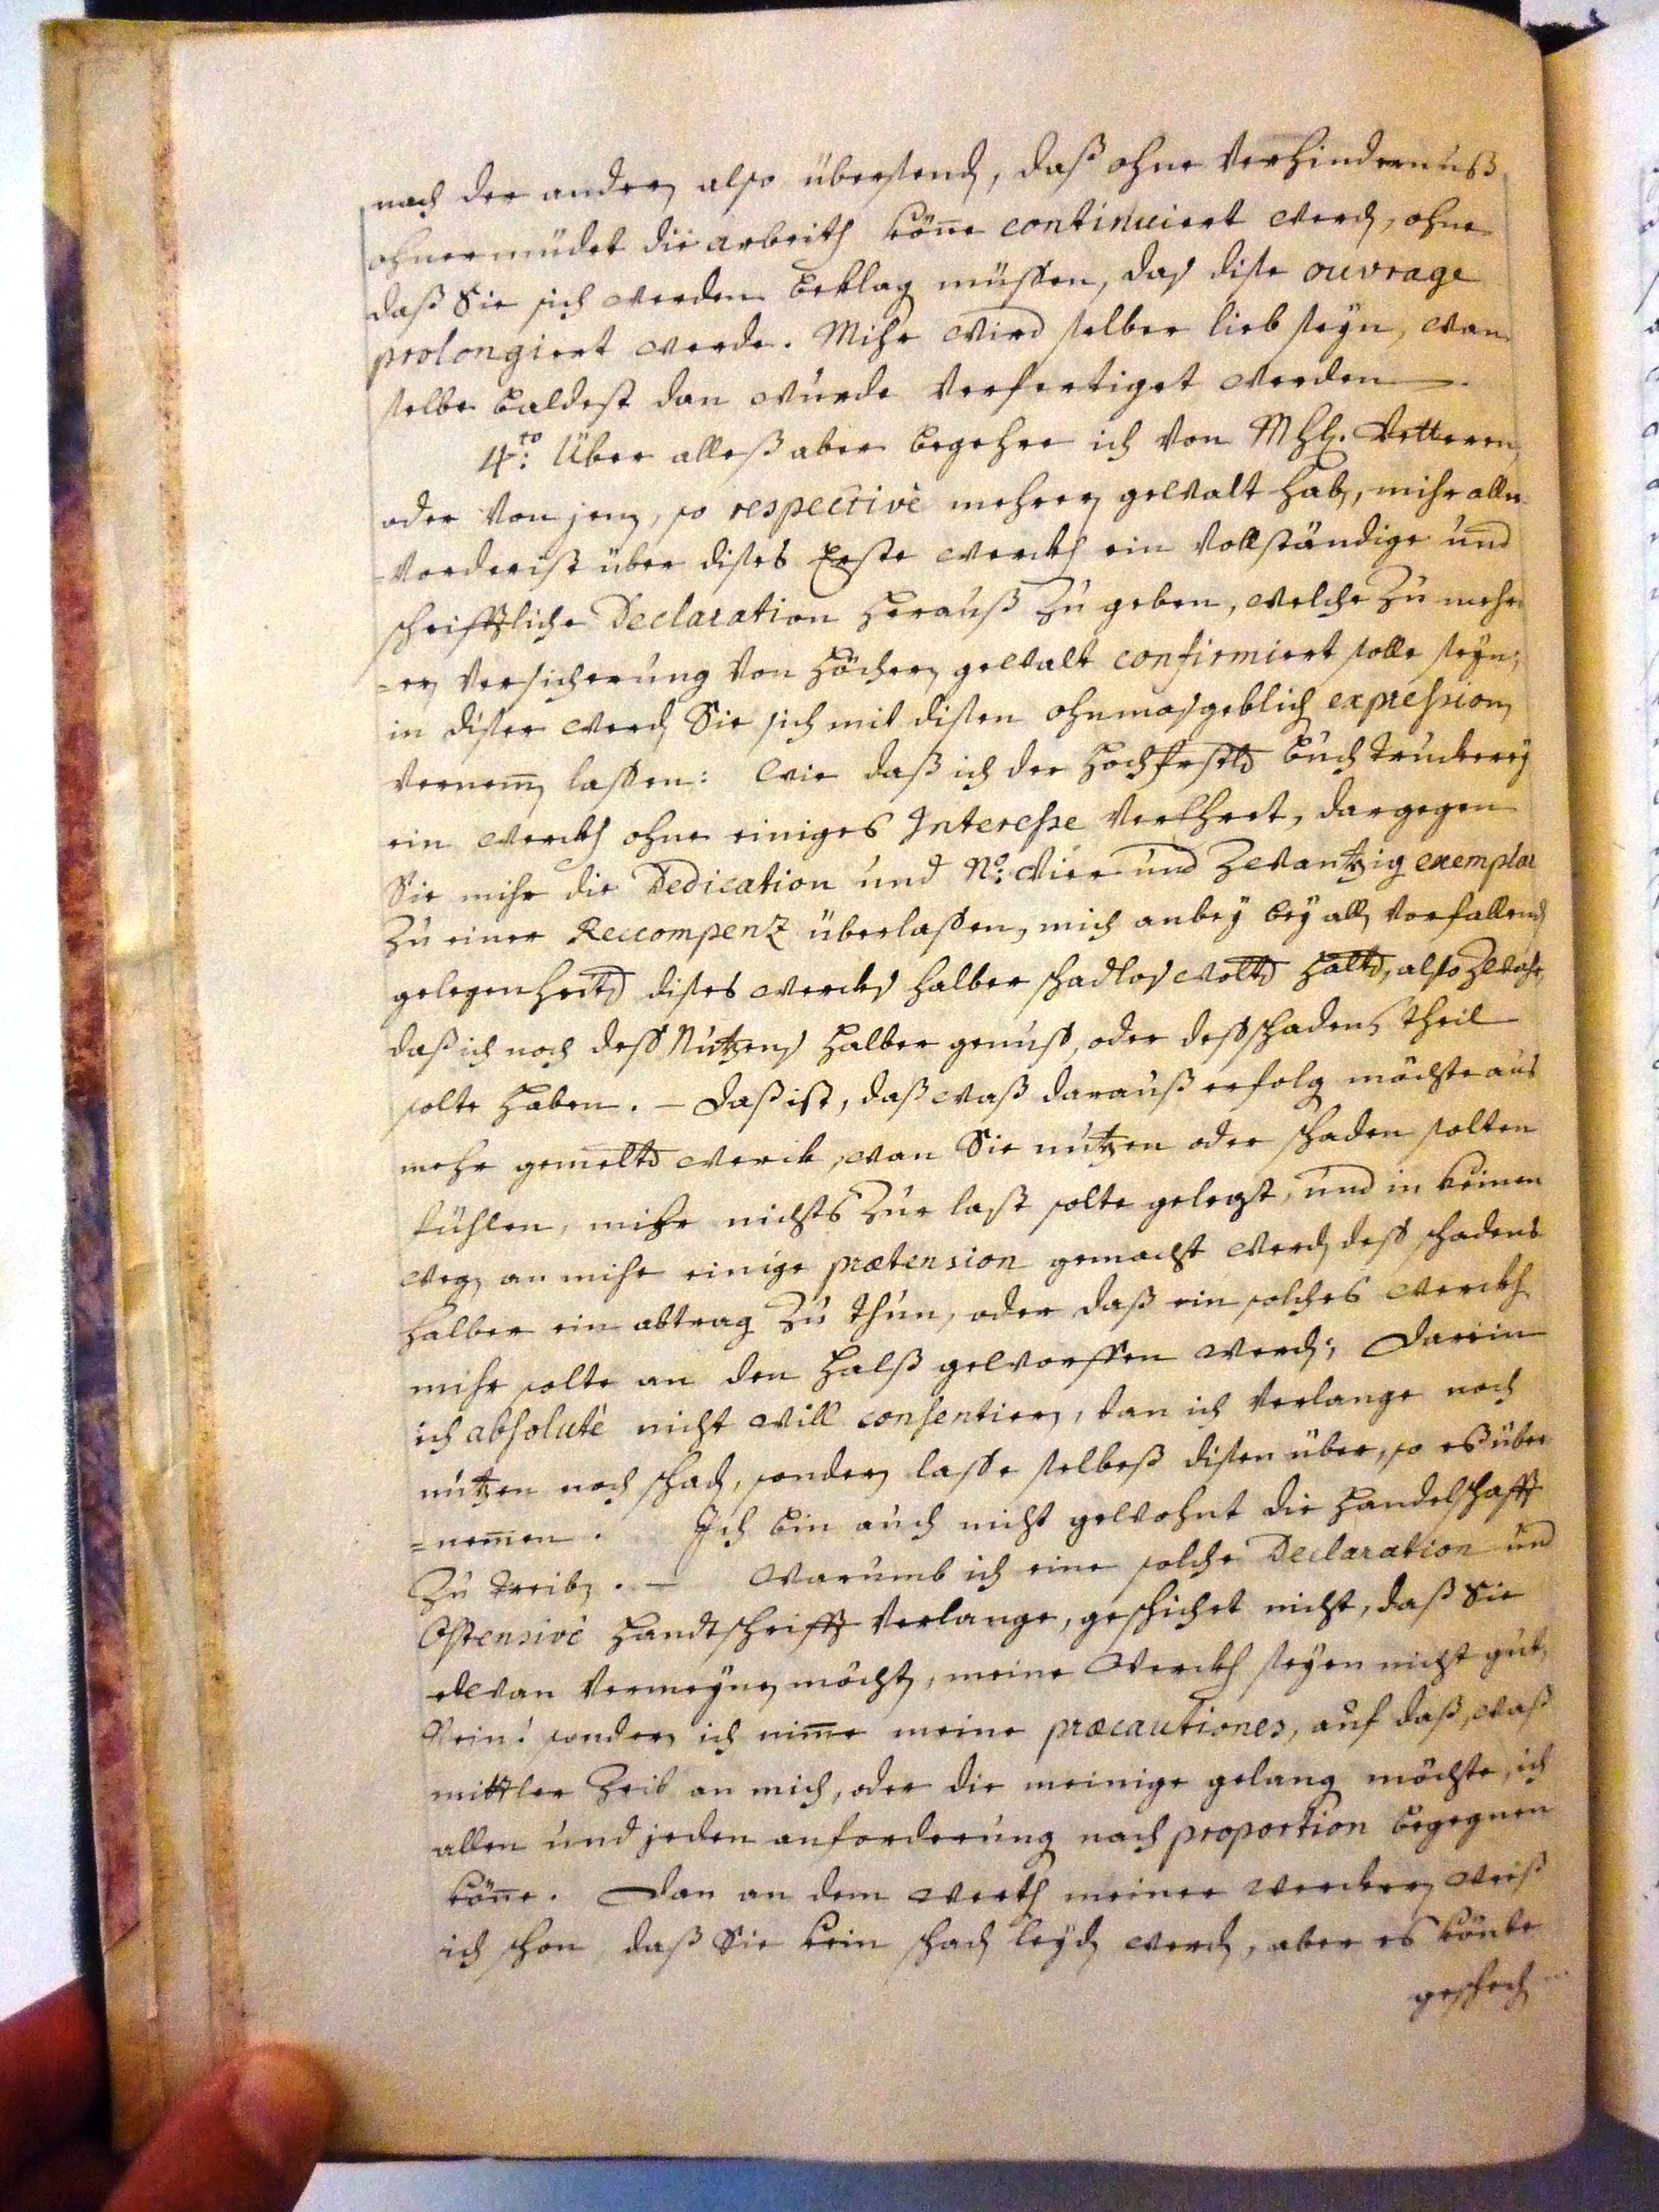 nach der andern also übersend, daß ohne Verhindernuß
ohnermüdet die arbeith könne continuiert werden, ohne
daß Sie sich werden beklag müssen, das dise ouvrage
prolongiert werde. Mihr wird selber lieb seyn, wan
selbe baldest dan wurde Verfertiget werden.
4.to Über alleß aber begehre ich von MhH. Vetteren,
oder von jenen, so respectivè mehrern gewalt haben, mihr aller
-vorderist über dises Erste werckh ein Vollständige und
schrifftliche Declaration herauß zu geben, welche zu mehr
=ern Versicherung von höchern gewalt confirmiert solle seyn;
in diser werden Sie sich mit disen ohnmasgeblich expression
vernemmen lassen: Wie daß ich der Hochfrstl Buchtruckerey
ein werckh ohne einiges Interesse Verehret, dargegen
Sie mihr die Dedication und No: Vier und zwantzig exemplar
zu einer Reccompenz überlassen, mich anbey bey allen vorfallenden
gelegenheiten dises wercks halber schadlos wolten halten, also zwahr,
daß ich noch dess Nutzens halber genuss, oder dess schadens theil
solte haben. – Daß ist, daß waß darauß erfolg möchte aus
mehr gemelten werck, wan Sie nutzen oder schaden solten
fühlen, mihr nichts zur last solte gelegt, und in keinen
weg an mihr einige prætension gemacht werden dess schadens
halber ein abtrag zu thun, oder daß ein solches werckh
mihr solte an den halß geworffen werden; Darein
ich absolutè nicht will consentiern, dan ich verlange noch
nutzen noch schaden, sondern lasse selbeß disen über, so eß über
=nemmen. Ich bin auch nicht gewohnt die handelschafft
zu treiben. – Warumb ich eine solche Declaration und
Ostensivè handtschrifft verlange, geschichet nicht, daß Sie
etwan vermeynen möchten, meine Werckh seyen nicht gut,
Nein! sondern ich nimme meine præcautiones, auf daß, waß
mittler Zeit an mich, oder die meinige gelang möchte, ich
allen und jeden anforderung nach proportion begegnen
könne. Dan an dem werth meiner werckern weiß
ich schon, daß Sie kein schaden leyden werden, aber es könte
geschech